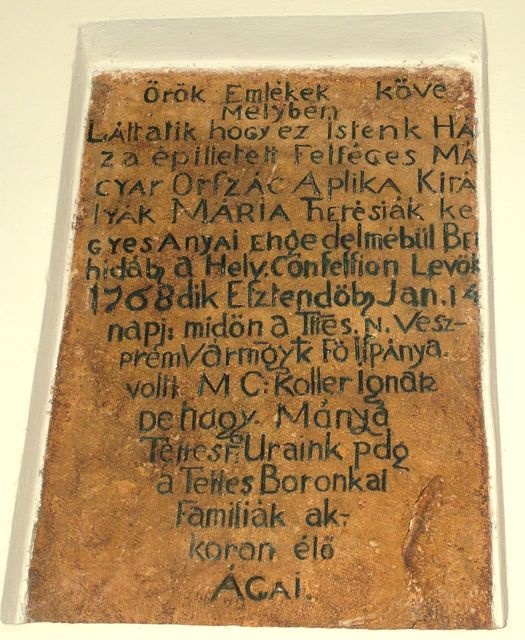 Örök Emlékek kövé
Melyben
Láttatik hogy ez Istenk Há
za épittetett Felséges Ma
gyar Orſzág Aplika Kirá
lyák MÁRIA Therésiák ke
gyes Anyai engedelméből Bei
hidáb a Helv. Confeſſion Levök
1768dik Eſztendöb Jan. 14
napj: midön a Ttés. N. Vesz-
prém Vármgyk Fö Iſpánya
volt M C: Koller Ignák
de nagy. Mánya
Tettes Uraink pdg
a Tettes Boronkai
Familiák ak-
koron élő
ÁGAI.